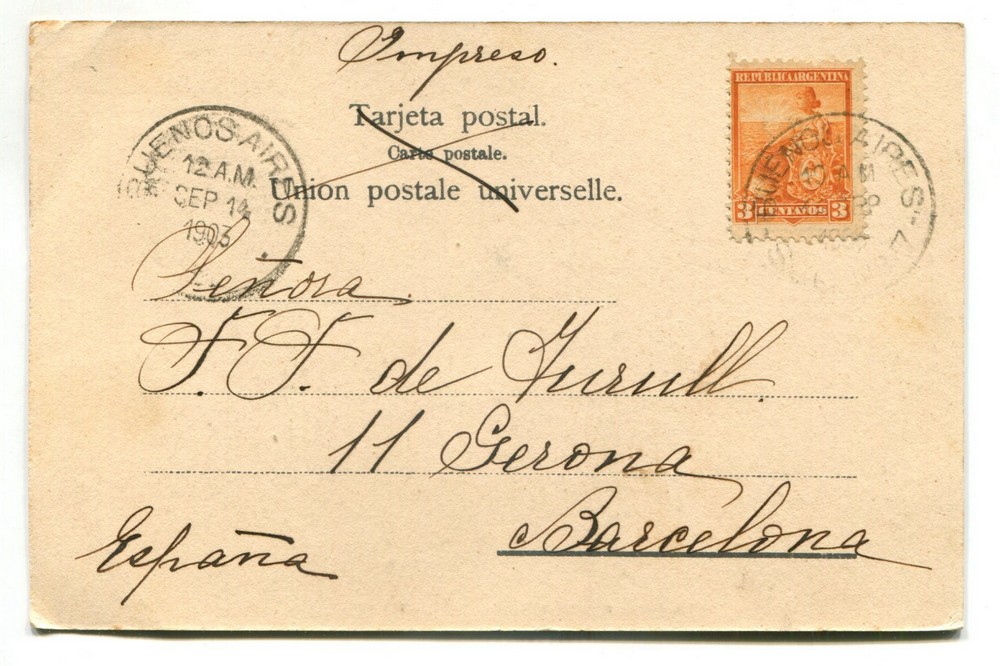 Impreso.
Tarjeta postal.
Carte postale.
Union postale universelle.
REPÚBLICA ARGENTINA
3 CENTAVOS 3
BUENOS AIRES
12 A.M.
SEP 14
1903
BUENOS AIRES
Señora.
F. F. de Turull.
11 Gerona
Barcelona
España